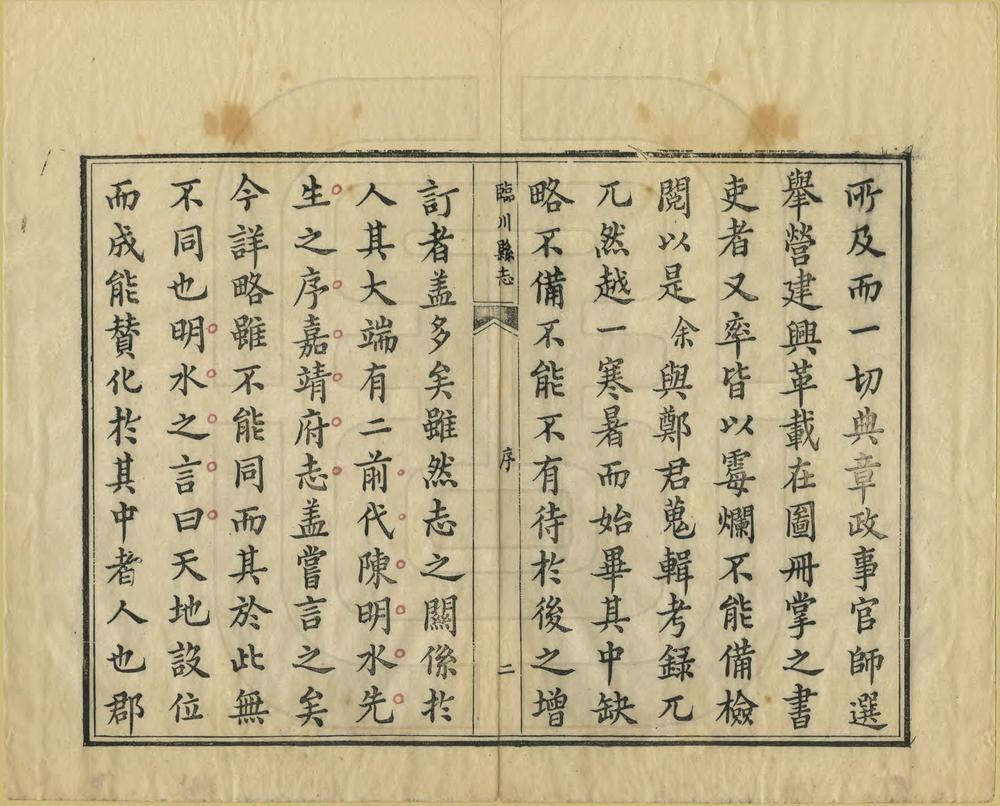 所及而一切典章政事官師選
舉營建興革載在圖冊掌之書
吏者又率皆以霉爛不能備檢
閱以是余與鄭君蒐輯考錄兀
兀然越一寒暑而始畢其中缺
略不備不能不有待於後之增
臨川縣志
序
二
訂者盖多矣雖然志之關係於
人其大端有二前代陳明水先
生之序嘉靖府志盖嘗言之矣
今詳略雖不能同而其於此無
不同也明水之言曰天地設位
而成能贊化於其中者人也郡